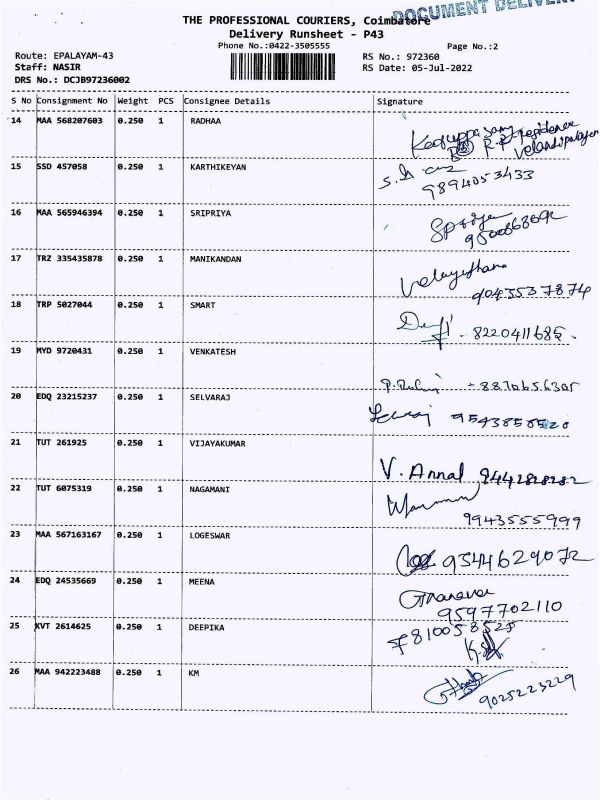 DOCUMENT DELIVERY
THE PROFESSIONAL COURIERS, Coimbatore
Delivery Runsheet - P43
Phone No.:0422-3505555
Page No.:2
Route: EPALAYAM-43
RS No.: 972360
Staff: NASIR
RS Date: 05-Jul-2022
DRS No.: DCJB97236002
S No Consignment No Weight PCS Consignee Details Signature
14 MAA 568207603 0.250 1 RADHAA
R.R residence
15 SSD 457058 0.250 1 KARTHIKEYAN
9894053433
16 MAA 565946394 0.250 1 SRIPRIYA
17 TRZ 335435878 0.250 1 MANIKANDAN
9043537874
18 TRP 5027044 0.250 1 SMART
8220411685
19 MYD 9720431 0.250 1 VENKATESH
20 EDQ 23215237 0.250 1 SELVARAJ
21 TUT 261925 0.250 1 VIJAYAKUMAR
V. Annal 9442828282
22 TUT 6075319 0.250 1 NAGAMANI
9943555999
23 MAA 567163167 0.250 1 LOGESWAR
9344629072
24 EDQ 24535669 0.250 1 MEENA
9597702110
25 KVT 2614625 0.250 1 DEEPIKA
26 MAA 942223488 0.250 1 KM
9025223229